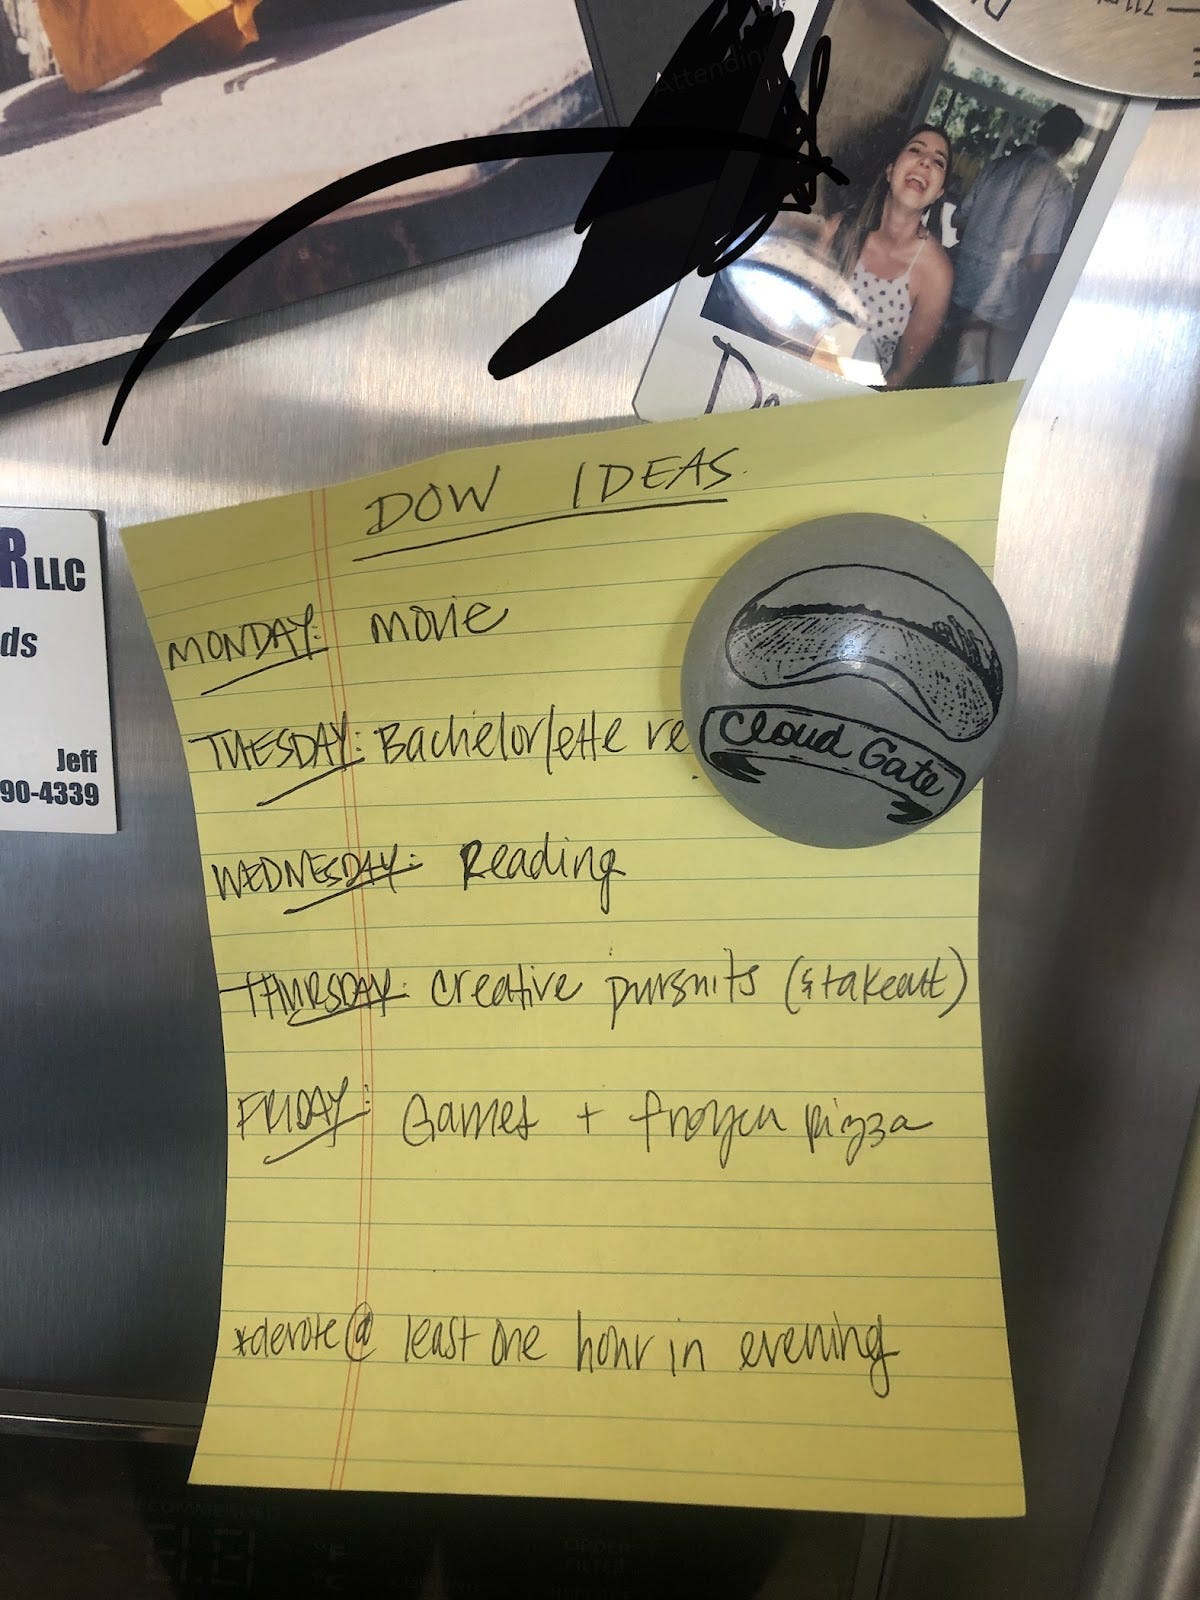 Attending
711 ml
R LLC
ds
Jeff
90-4339
DOW IDEAS
MONDAY: movie
TUESDAY: Bachelor/ette re
Cloud Gate
WEDNESDAY: Reading
THURSDAY: creative pursuits (& takeout)
FRIDAY: Games + frozen pizza
*devote @ least one hour in evening
RECOMMENDED
ORDER
FILTER